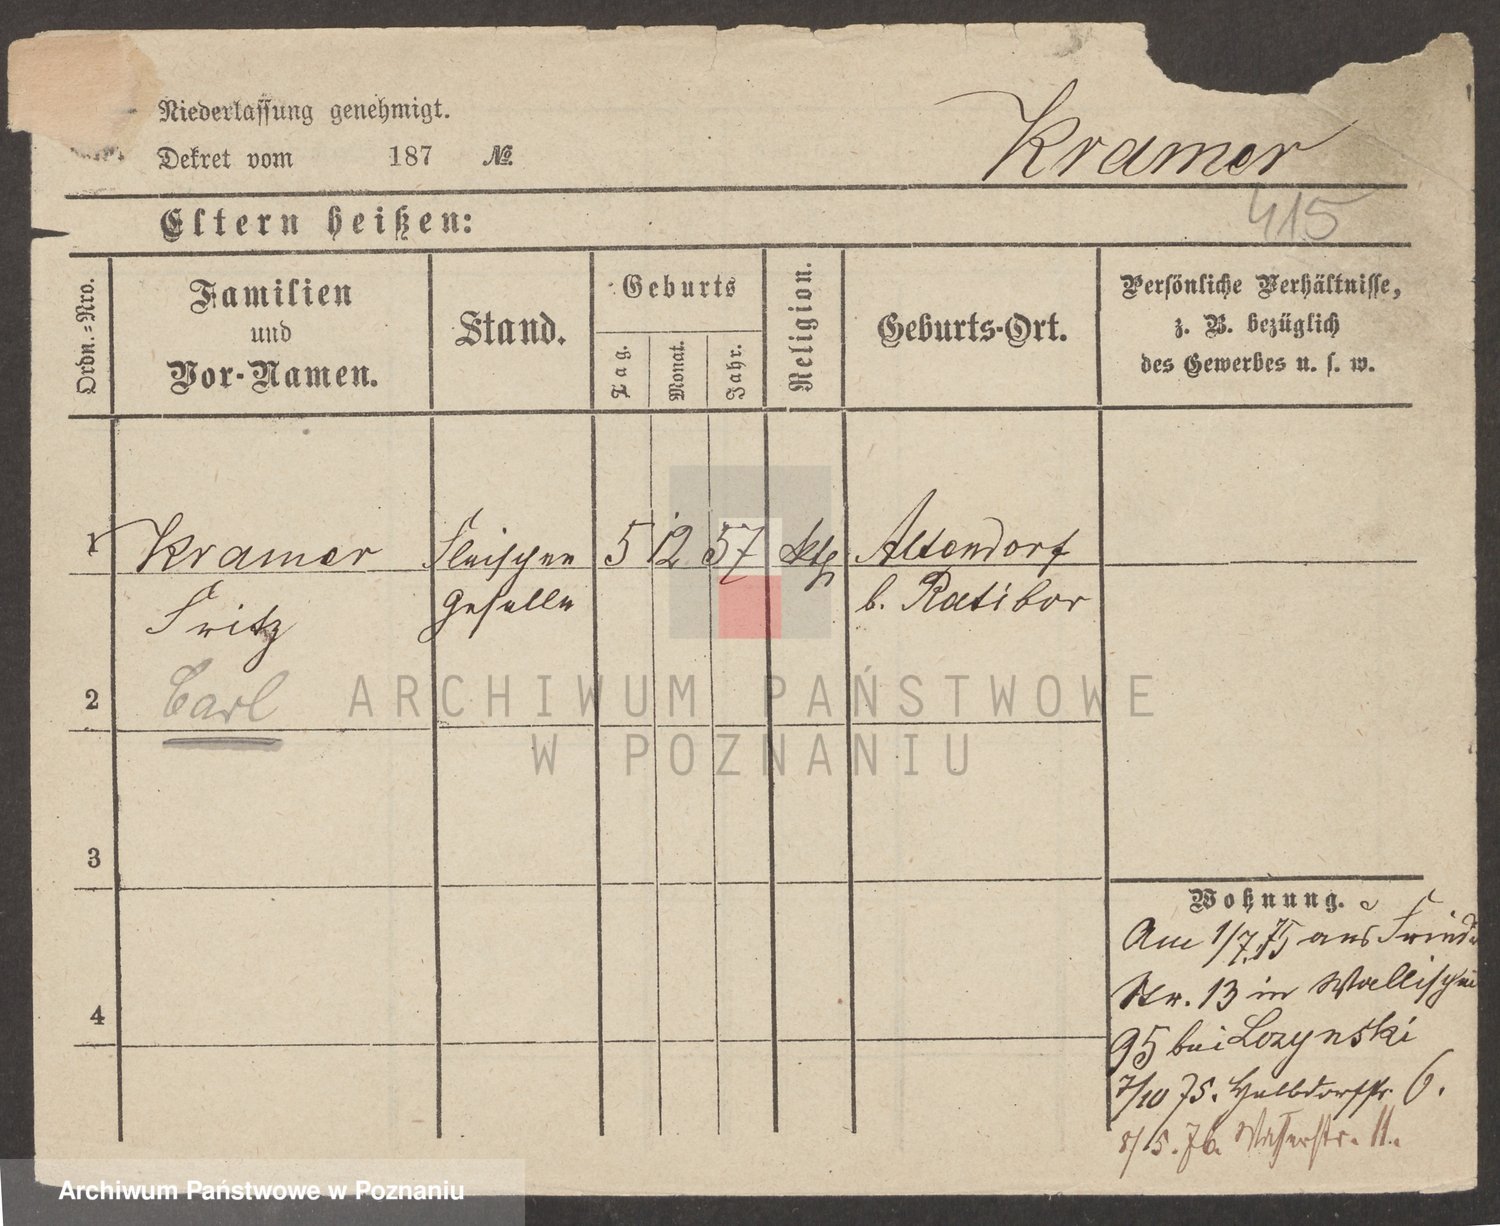 Niederlassung genehmigt.
Dekret vom 187 №
Kramer
415
Eltern heißen:
Ordn.=Nro.
Familien
und
Vor-Namen.
Stand.
Geburts
Tag.
Monat.
Jahr.
Religion.
Geburts-Ort.
Persönliche Verhältnisse,
z. B. bezüglich
des Gewerbes u. s. w.
1 Kramer Fleischer 5 12 57 kth Altendorf
Fritz Geselle b. Ratibor
2 Carl
3
4
Wohnung.
Am 1/7.75 aus Friedr
Str. 13 in Wallischei
95 bei Lozynski
7/10 75. Halbdorfstr. 6.
8/5.76. Wasserstr. 11.
ARCHIWUM PAŃSTWOWE
W POZNANIU
Archiwum Państwowe w Poznaniu